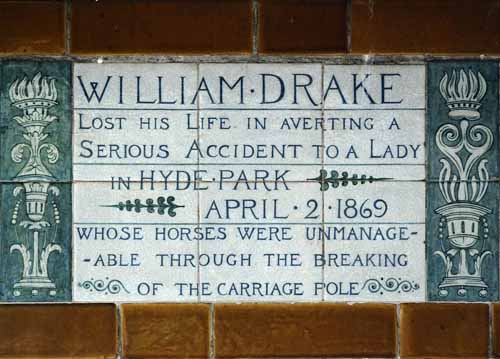 WILLIAM·DRAKE
LOST HIS LIFE IN AVERTING A
SERIOUS ACCIDENT TO A LADY
IN HYDE·PARK
APRIL·2·1869
WHOSE HORSES WERE UNMANAGE-
-ABLE THROUGH THE BREAKING
OF THE CARRIAGE POLE